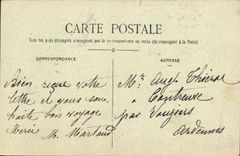 CARTE POSTALE
Tous les pays étrangers n'acceptent pas la correspondance au recto (Se renseigner à la Poste)
CORRESPONDANCE
ADRESSE
Bien reçue votre
lettre et vous sou
haite bon voyage
Merci M. Martaud
Mr Augte
à
par Vouziers
Ardennes